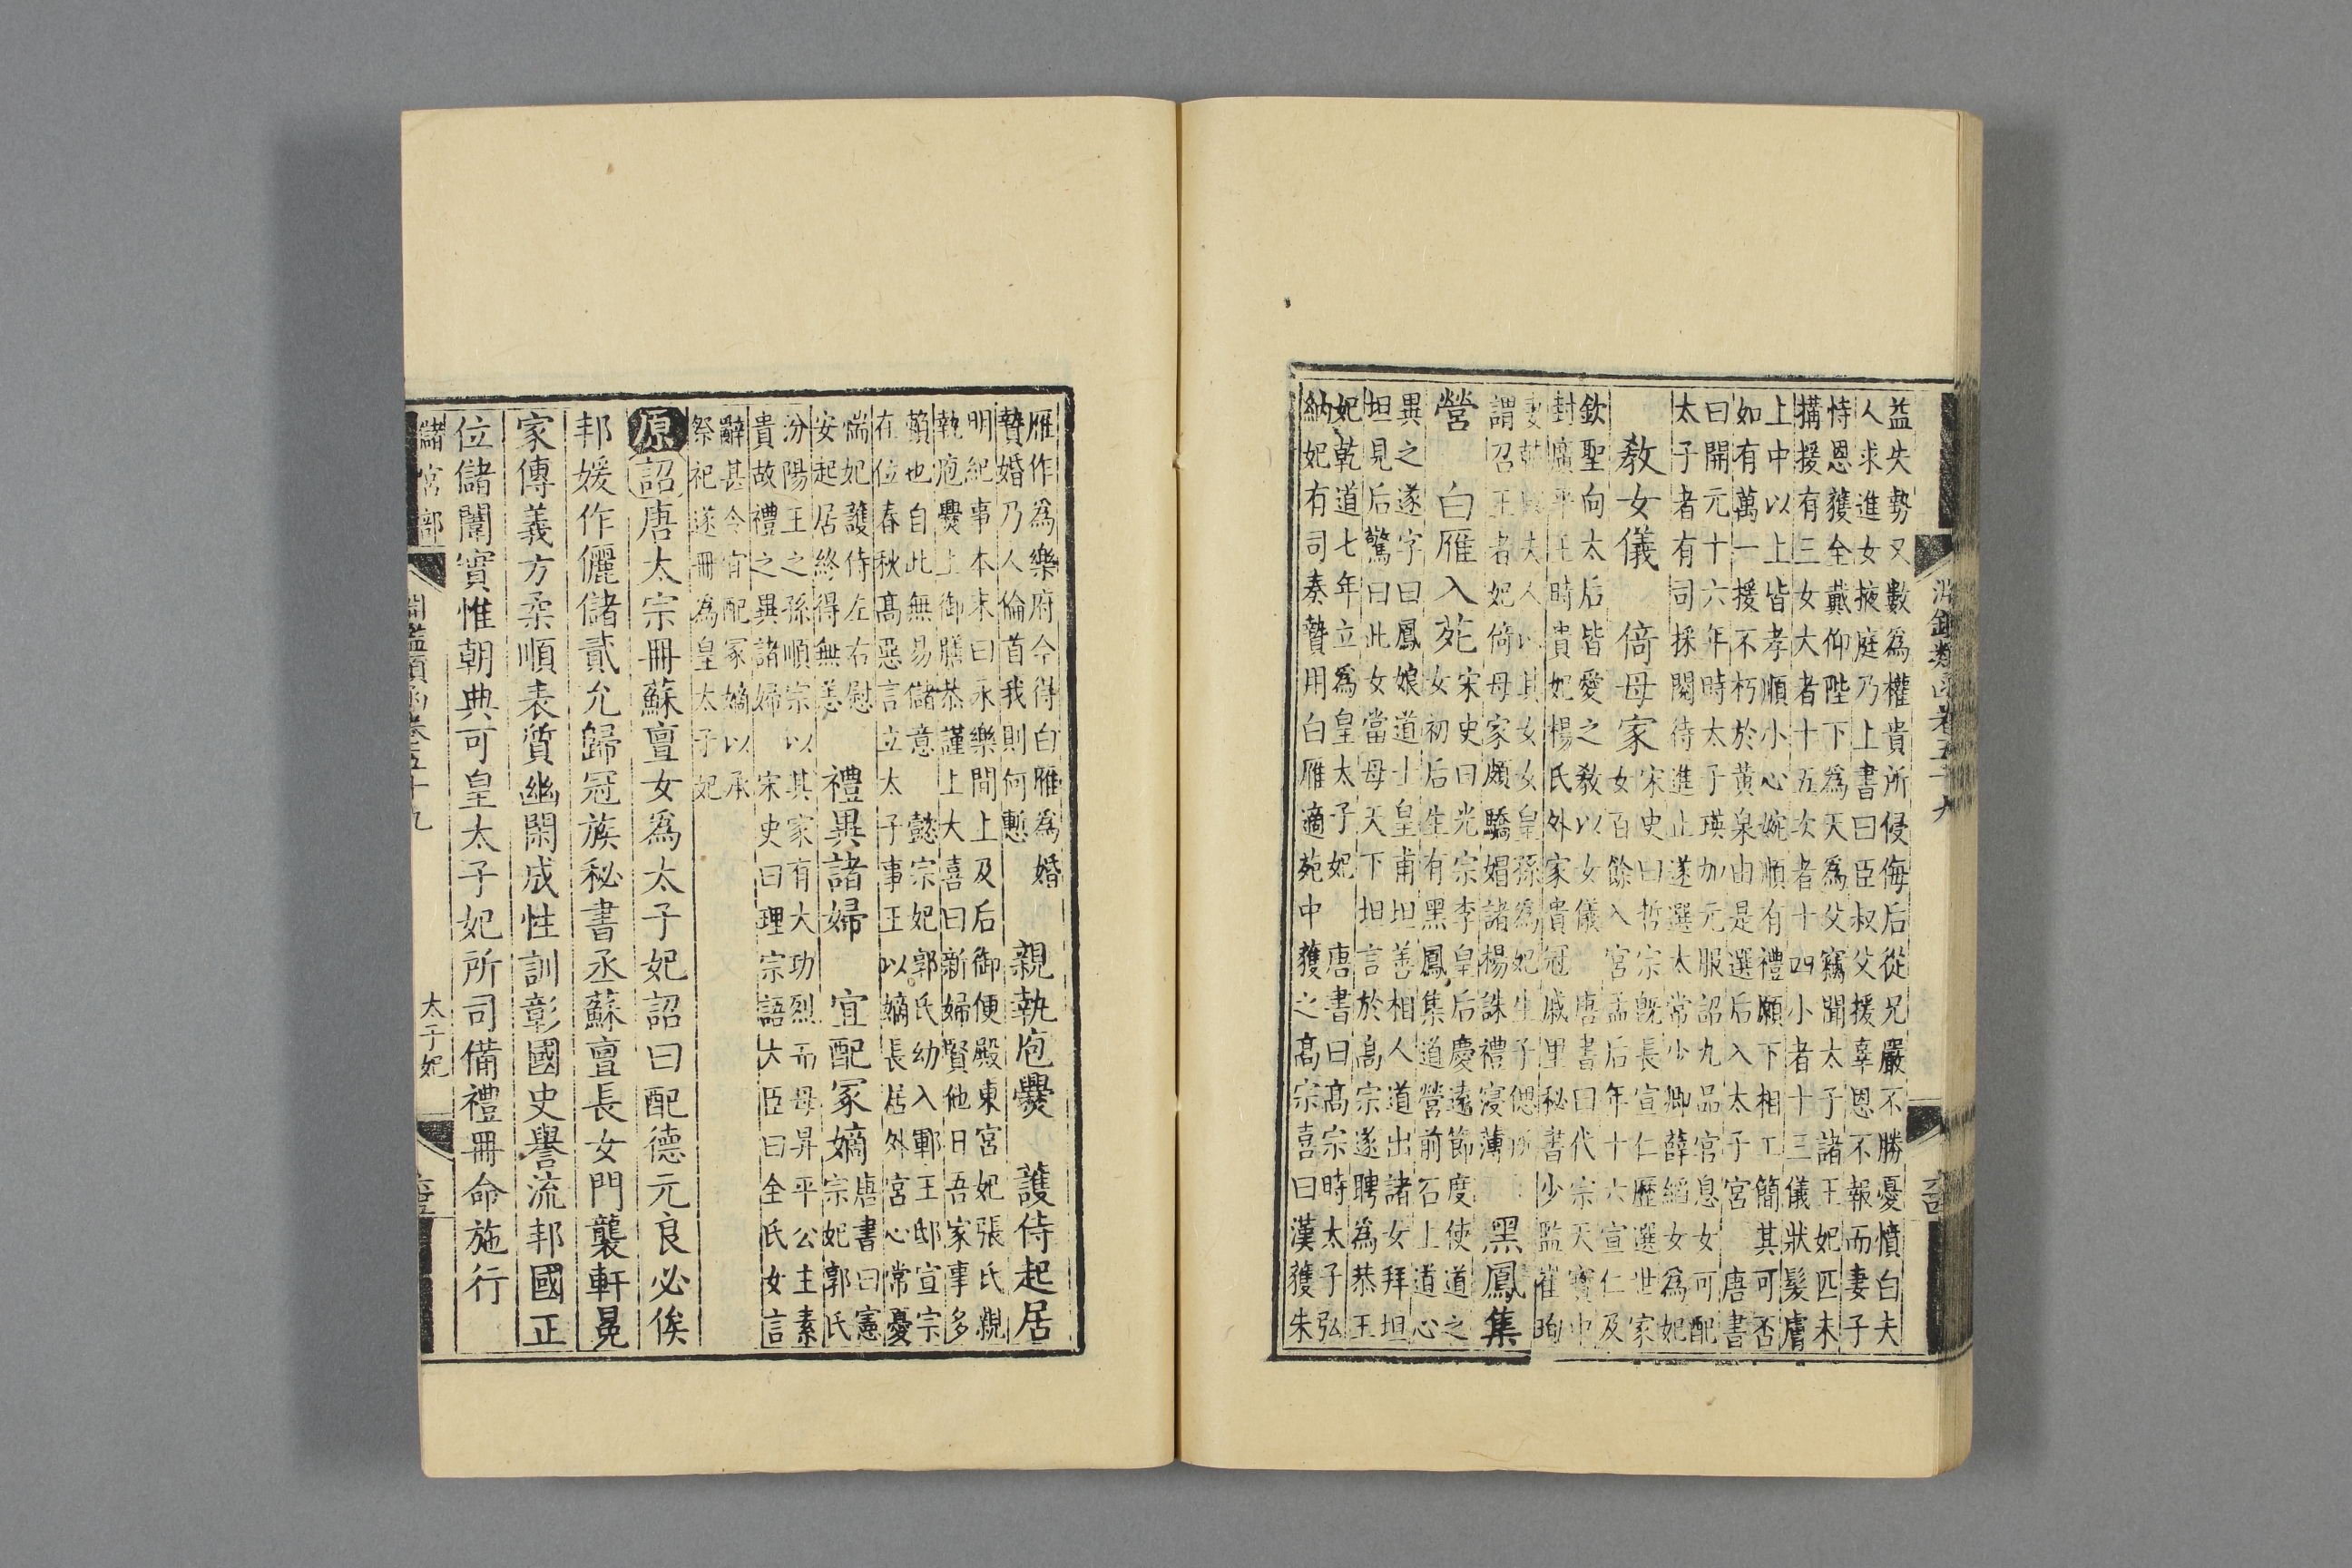 淵鑑類函卷五十九
益失勢又數為權貴所侵侮后從兄嚴不勝憂憤白夫
人求進女掖庭乃上書曰臣叔父援辜恩不報而妻子
恃恩獲全戴仰陛下為天為父竊聞太子諸王妃匹未
搆援有三女大者十五次者十四小者十三儀狀髪膚
上中以上皆孝順小心婉順有禮願下相工簡其可否
如有萬一援不朽於黃泉由是選后入太子宮 唐書
曰開元十六年時太子瑛加元服詔九品官息女可配
太子者有司採閱待進止遂選太常少卿薛縚女為妃
教女儀 倚母家
宋史曰哲宗既長宣仁歷選世家
女百餘入宮孟后年十六宣仁及
欽聖向太后皆愛之教以女儀 唐書曰代宗天寶中
封廣平王時貴妃楊氏外家貴冠戚里秘書少監崔珣
妻韓國夫人以其女女皇孫為妃生子偲所
謂召王者妃倚母家頗驕媢諸楊誅禮寖薄
黑鳳集
營 白雁入苑
宋史曰光宗李皇后慶遠節度使道之
女初后生有黑鳳集道營前石上道心
異之遂字曰鳳娘道士皇甫坦善相人道出諸女拜坦
坦見后驚曰此女當母天下坦言於高宗遂聘為恭王
妃乾道七年立為皇太子妃 唐書曰高宗時太子弘
納妃有司奏贄用白雁適苑中獲之高宗喜曰漢獲朱
雁作為樂府今得白雁為婚
贄婚乃人倫首我則何慙
親執庖爨 護侍起居
明紀事本末曰永樂間上及后御便殿東宮妃張氏親
執庖爨上御膳恭謹上大喜曰新婦賢他日吾家事多
賴也自此無易儲意 懿宗妃郭氏幼入鄆王邸宣宗
在位春秋高惡言立太子事王以嫡長居外宮心常憂
惴妃護侍左右慰
安起居終得無恙
禮異諸婦 宜配冢嫡
唐書曰憲
宗妃郭氏
汾陽王之孫順宗以其家有大功烈而母昇平公主素
貴故禮之異諸婦 宋史曰理宗語大臣曰全氏女言
辭甚令宜配冢嫡以承
祭祀遂冊為皇太子妃
原詔唐太宗冊蘇亶女為太子妃詔曰配德元良必俟
邦媛作儷儲貳允歸冠族秘書丞蘇亶長女門襲軒冕
家傳義方柔順表質幽閑成性訓彰國史譽流邦國正
位儲闈實惟朝典可皇太子妃所司備禮冊命施行
儲宮部 淵鑑類函卷五十九 太子妃